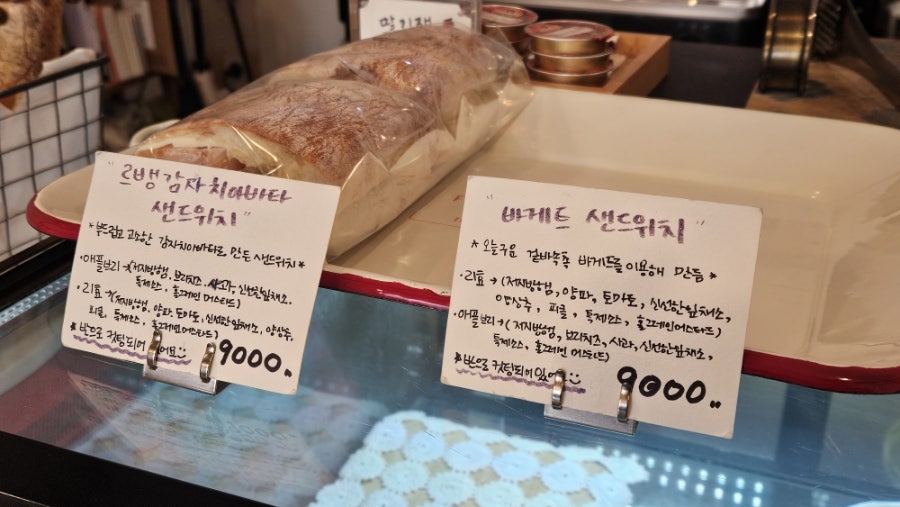 "르뱅감자 치아바타
샌드위치"
*부드럽고 고소한 감자치아바타로 만든 샌드위치*
·애플브리→(저지방햄, 브리치즈, 사과, 신선한잎채소,
특제소스, 홀그레인 머스타드)
·리코→(저지방햄, 양파, 토마토, 신선한잎채소, 양상추,
피클, 특제소스, 홀그레인머스타드)
*반으로 컷팅되어 있어요
9000..
"바게트 샌드위치"
*오늘구운 겉바속촉 바게트를 이용해 만듬*
·리코→(저지방햄, 양파, 토마토, 신선한잎채소,
양상추, 피클, 특제소스, 홀그레인머스타드)
·애플브리→(저지방햄, 브리치즈, 사과, 신선한잎채소,
특제소스, 홀그레인 머스타드)
*반으로 컷팅되어있
9000..